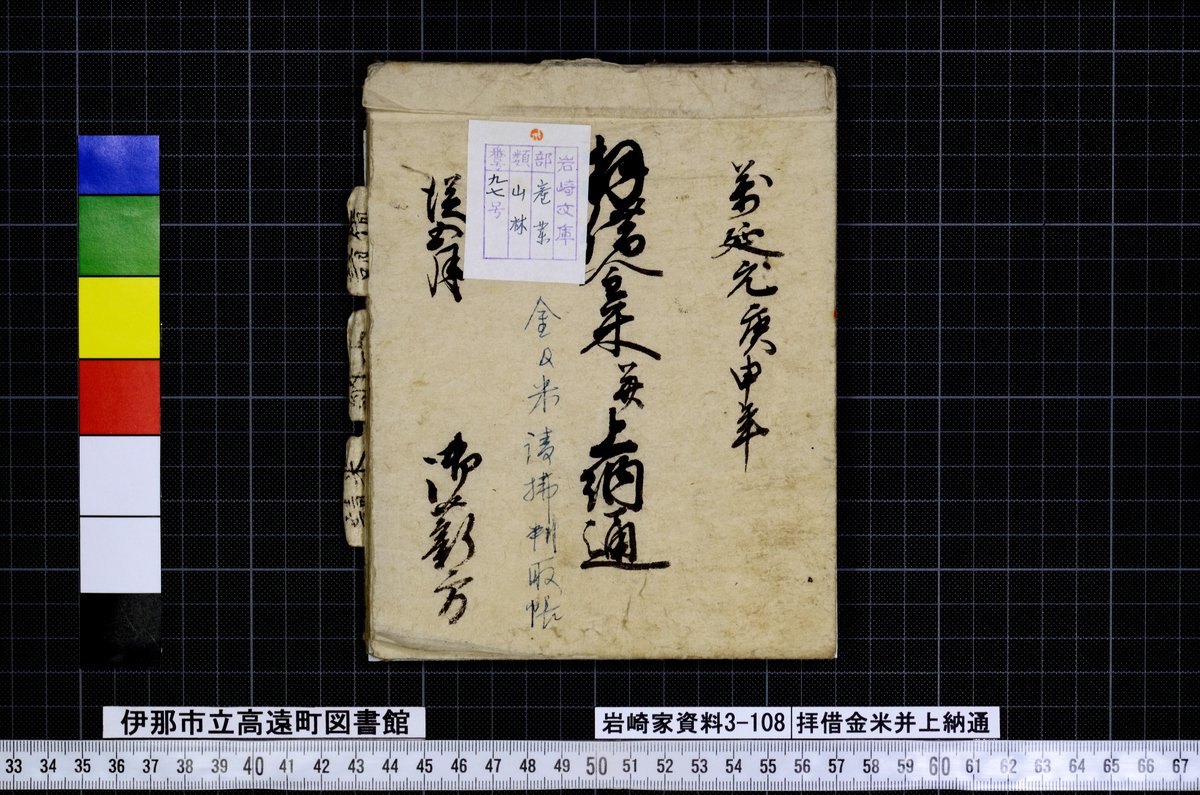 萬延元庚申年
拝借金米并上納通
岩崎文庫
部 産業
類 山林
番号 九七号
金及米請拂判取帳
従五月
御薪方
伊那市立高遠町図書館
岩崎家資料3-108
拝借金米并上納通
33 34 35 36 37 38 39 40 41 42 43 44 45 46 47 48 49 50 51 52 53 54 55 56 57 58 59 60 61 62 63 64 65 66 67